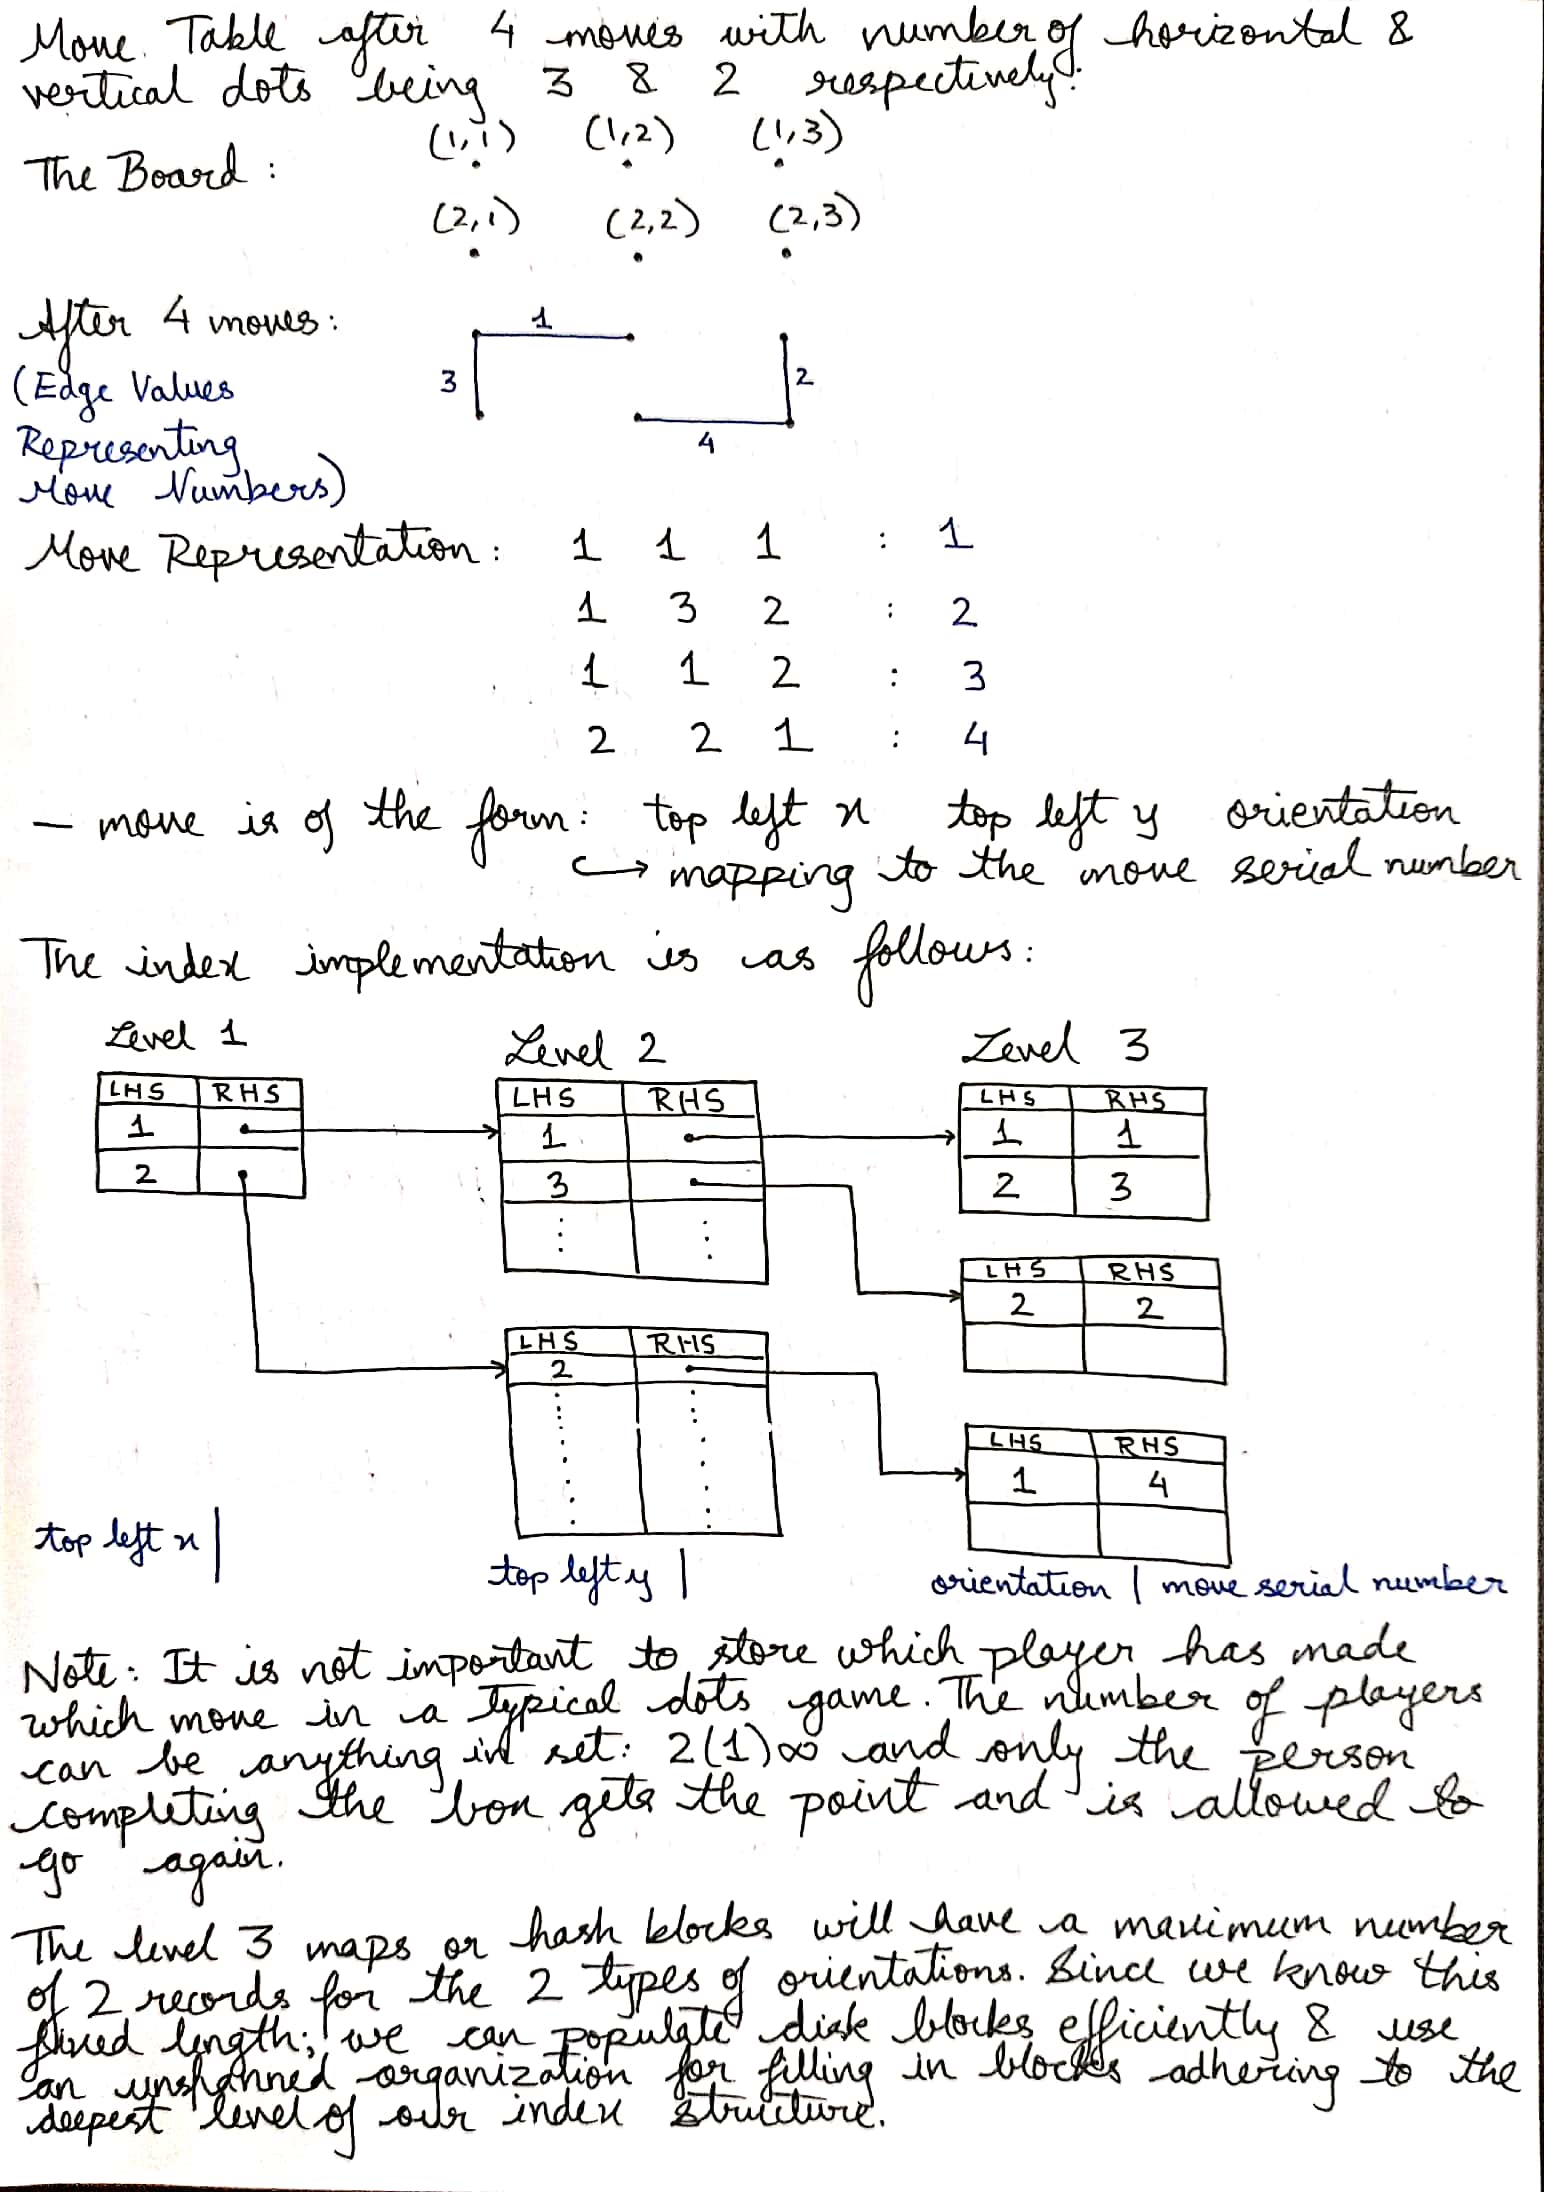 Move Table after 4 moves with number of horizontal &
vertical dots being 3 & 2 respectively.
(1,1) (1,2) (1,3)
The Board :
(2,1) (2,2) (2,3)
After 4 moves:
1
(Edge Values
3
2
Representing
4
Move Numbers)
Move Representation: 1 1 1 : 1
1 3 2 : 2
1 1 2 : 3
2 2 1 : 4
— move is of the form: top left x top left y orientation
↪ mapping to the move serial number
The index implementation is as follows:
Level 1
LHS RHS
1
2
Level 2
LHS RHS
1
3
LHS RHS
2
Level 3
LHS RHS
1 1
2 3
LHS RHS
2 2
LHS RHS
1 4
top left x |
top left y |
orientation | move serial number
Note: It is not important to store which player has made
which move in a typical dots game. The number of players
can be anything in set: 2(1)∞ and only the person
completing the box gets the point and is allowed to
go again.
The level 3 maps or hash blocks will have a maximum number
of 2 records for the 2 types of orientations. Since we know this
fixed length; we can populate disk blocks efficiently & use
an unspanned organization for filling in blocks adhering to the
deepest level of our index structure.